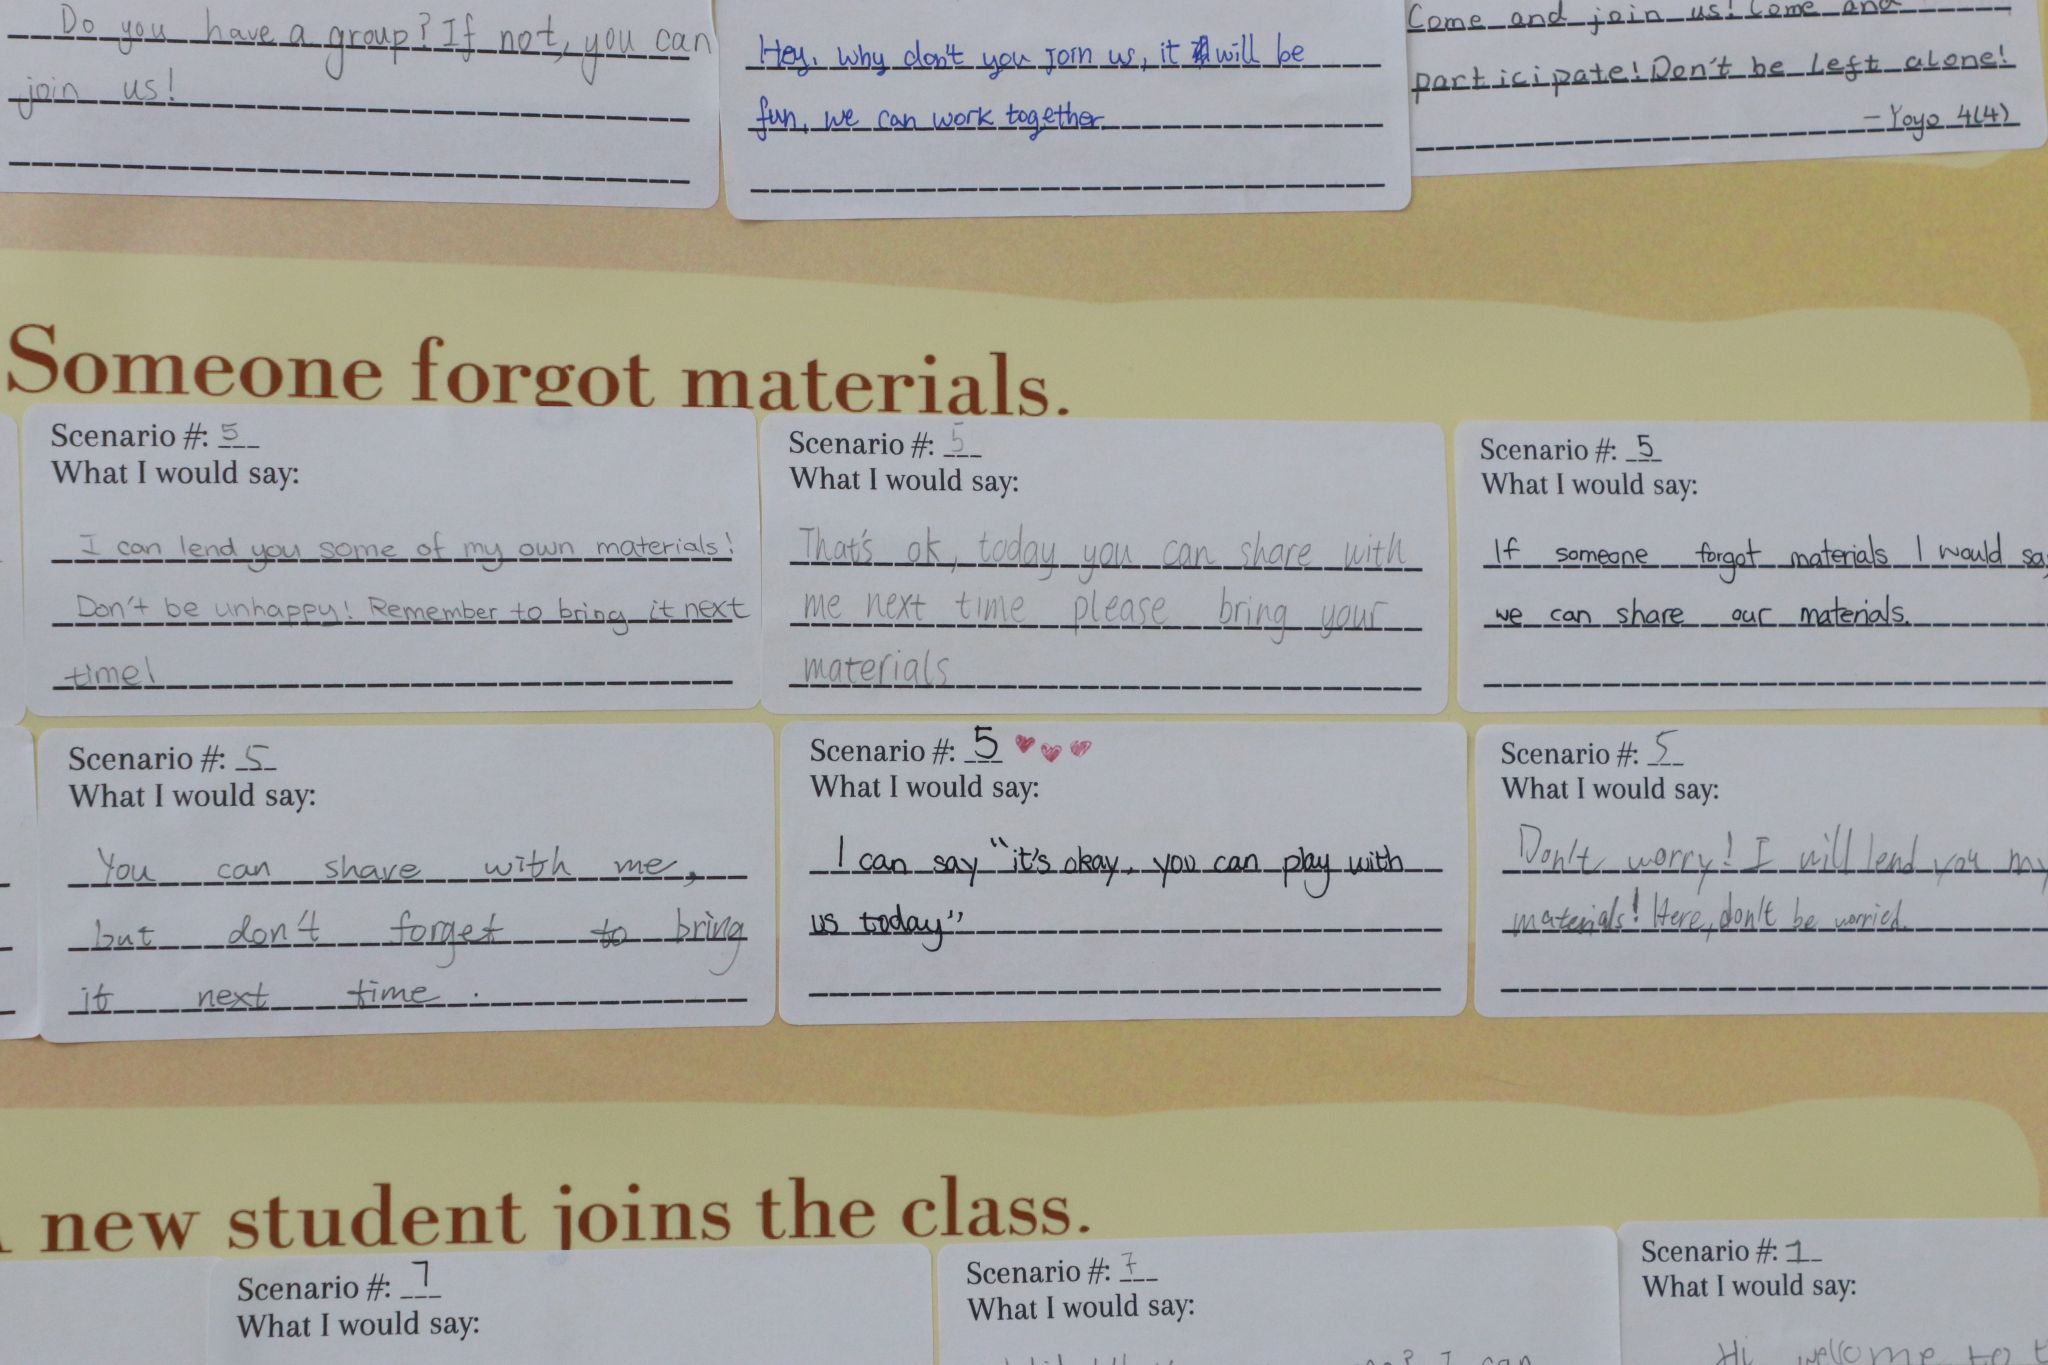 Do you have a group? If not, you can
join us!
Hey, why don't you join us, it will be
fun, we can work together
Come and join us! Come and
participate! Don't be left alone!
- Yoyo 4(4)
Someone forgot materials.
Scenario #: 5
What I would say:
I can lend you some of my own materials!
Don't be unhappy! Remember to bring it next
time!
Scenario #: 5
What I would say:
That's ok, today you can share with
me next time please bring your
materials
Scenario #: 5
What I would say:
If someone forgot materials I would
we can share our materials.
Scenario #: 5
What I would say:
You can share with me,
but don't forget to bring
it next time.
Scenario #: 5
What I would say:
I can say "it's okay, you can play with
us today"
Scenario #: 5
What I would say:
Don't worry! I will lend you my
materials! Here, don't be worried.
new student joins the class.
Scenario #: 7
What I would say:
Scenario #: 7
What I would say:
? I can
Scenario #: 1
What I would say:
Hi welcome to